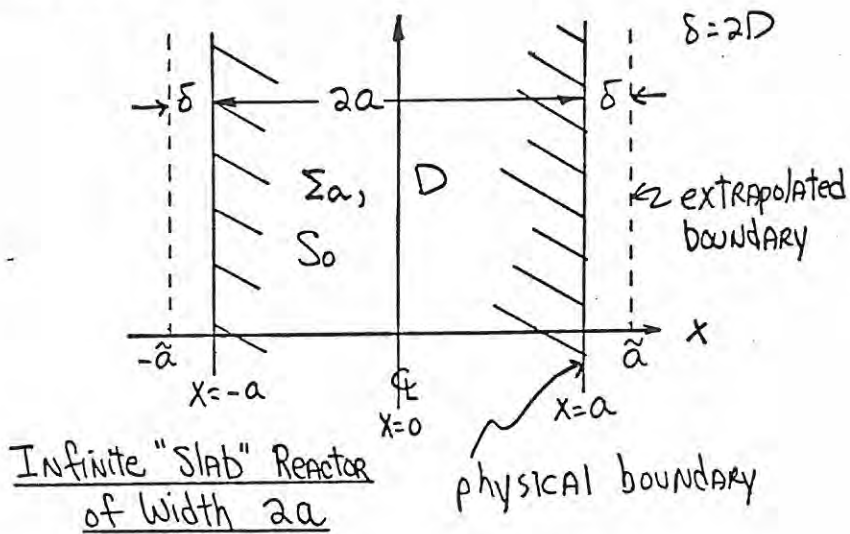 δ=2D
δ
2a
δ
Σa, D
S₀
extrapolated
boundary
-ã
ã
x
x=-a
℄
x=0
x=a
Infinite "Slab" Reactor
of Width 2a
physical boundary